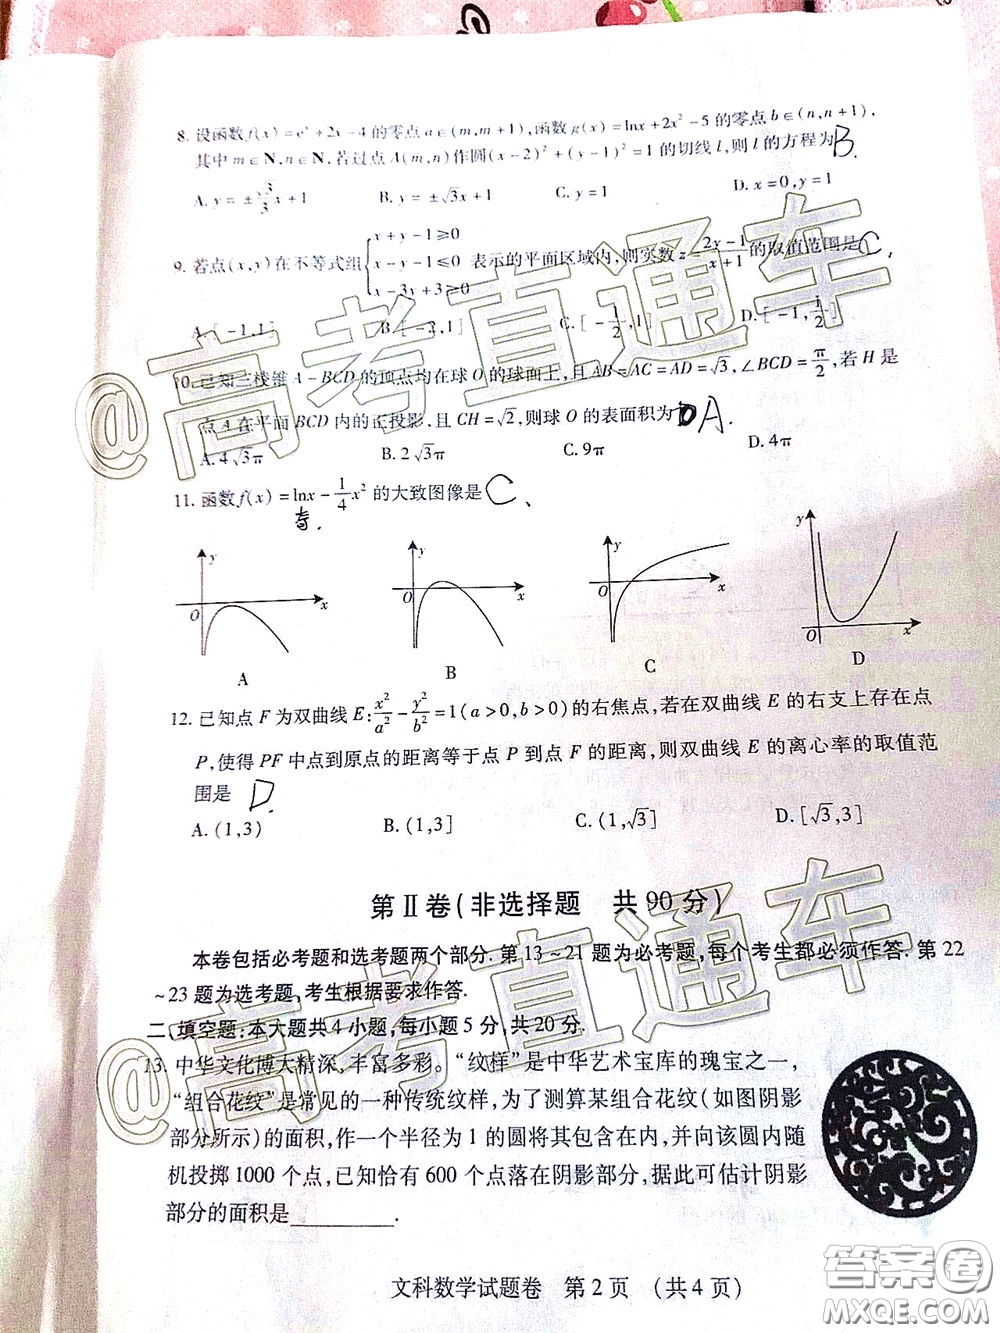 8. 设函数f(x)=eˣ+2x-4的零点a∈(m,m+1),函数g(x)=lnx+2x²-5的零点b∈(n,n+1),
其中m∈N,n∈N.若过点A(m,n)作圆(x-2)²+(y-1)²=1的切线l,则l的方程为 B.
A. y=±√3/3 x+1 B. y=±√3x+1 C. y=1 D. x=0,y=1
9. 若点(x,y)在不等式组{x+y-1≥0 x-y-1≤0 x-3y+3≥0 表示的平面区域内,则实数z=(2y-1)/(x+1)的取值范围是 C.
A. [-1,1] B. [-2,1] C. [-1/2,1] D. [-1,1/2]
10. 已知三棱锥A-BCD的顶点均在球O的球面上,且AB=AC=AD=√3,∠BCD=π/2,若H是
点A在平面BCD内的正投影,且CH=√2,则球O的表面积为 D A.
A. 4√3π B. 2√3π C. 9π D. 4π
11. 函数f(x)=lnx-1/4x²的大致图像是 C.
y x O
y x O
y x O
y x O
A B C D
12. 已知点F为双曲线E:x²/a²-y²/b²=1(a>0,b>0)的右焦点,若在双曲线E的右支上存在点
P,使得PF中点到原点的距离等于点P到点F的距离,则双曲线E的离心率的取值范
围是 D
A. (1,3) B. (1,3] C. (1,√3] D. [√3,3]
第Ⅱ卷(非选择题 共90分)
本卷包括必考题和选考题两个部分.第13~21题为必考题,每个考生都必须作答.第22
~23题为选考题,考生根据要求作答.
二、填空题:本大题共4小题,每小题5分,共20分.
13. 中华文化博大精深,丰富多彩.“纹样”是中华艺术宝库的瑰宝之一,
“组合花纹”是常见的一种传统纹样,为了测算某组合花纹(如图阴影
部分所示)的面积,作一个半径为1的圆将其包含在内,并向该圆内随
机投掷1000个点,已知恰有600个点落在阴影部分,据此可估计阴影
部分的面积是________.
文科数学试题卷 第2页 (共4页)
@高考直通车
@高考直通车
答案圈
MXQE.COM